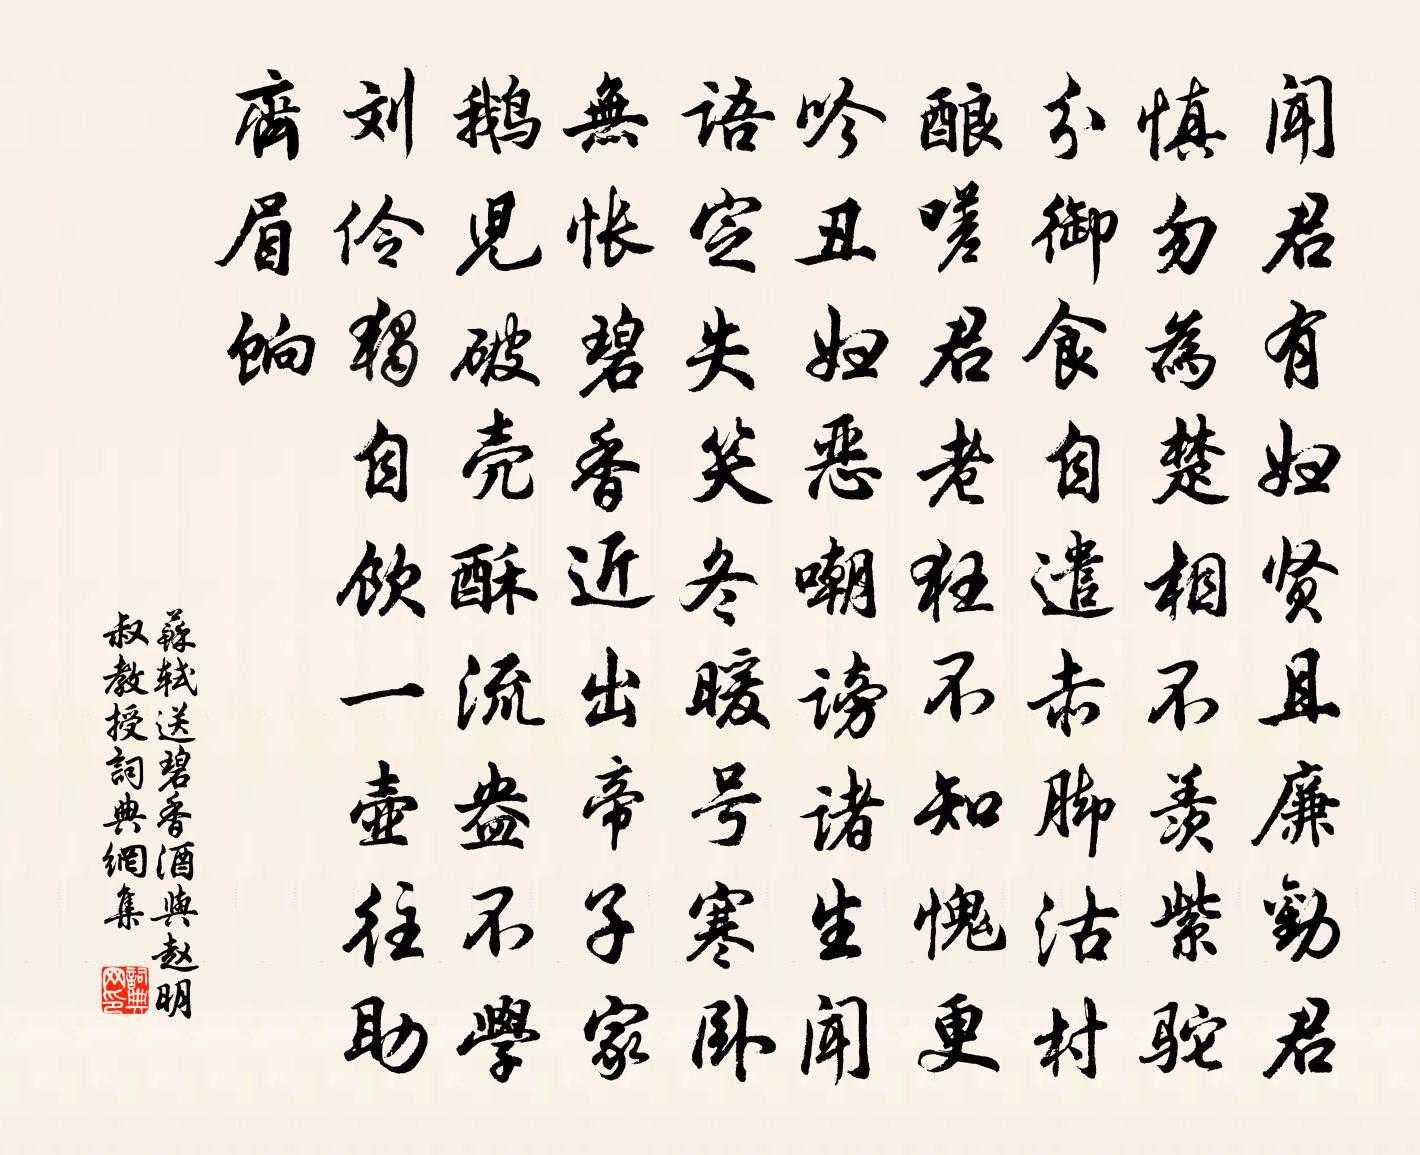 闻君有妇贤且廉劝君
慎勿為楚相不羡紫驼
分御食自遣赤脚沽村
酿嗟君老狂不知愧更
吟丑妇恶嘲谤诸生闻
语定失笑冬暖号寒卧
無怅碧香近出帝子家
鹅児破壳酥流盎不學
刘伶独自飲一壶往助
齊眉餉
蘇轼送碧香酒與赵明
叔教授詞典網集
詞典网印